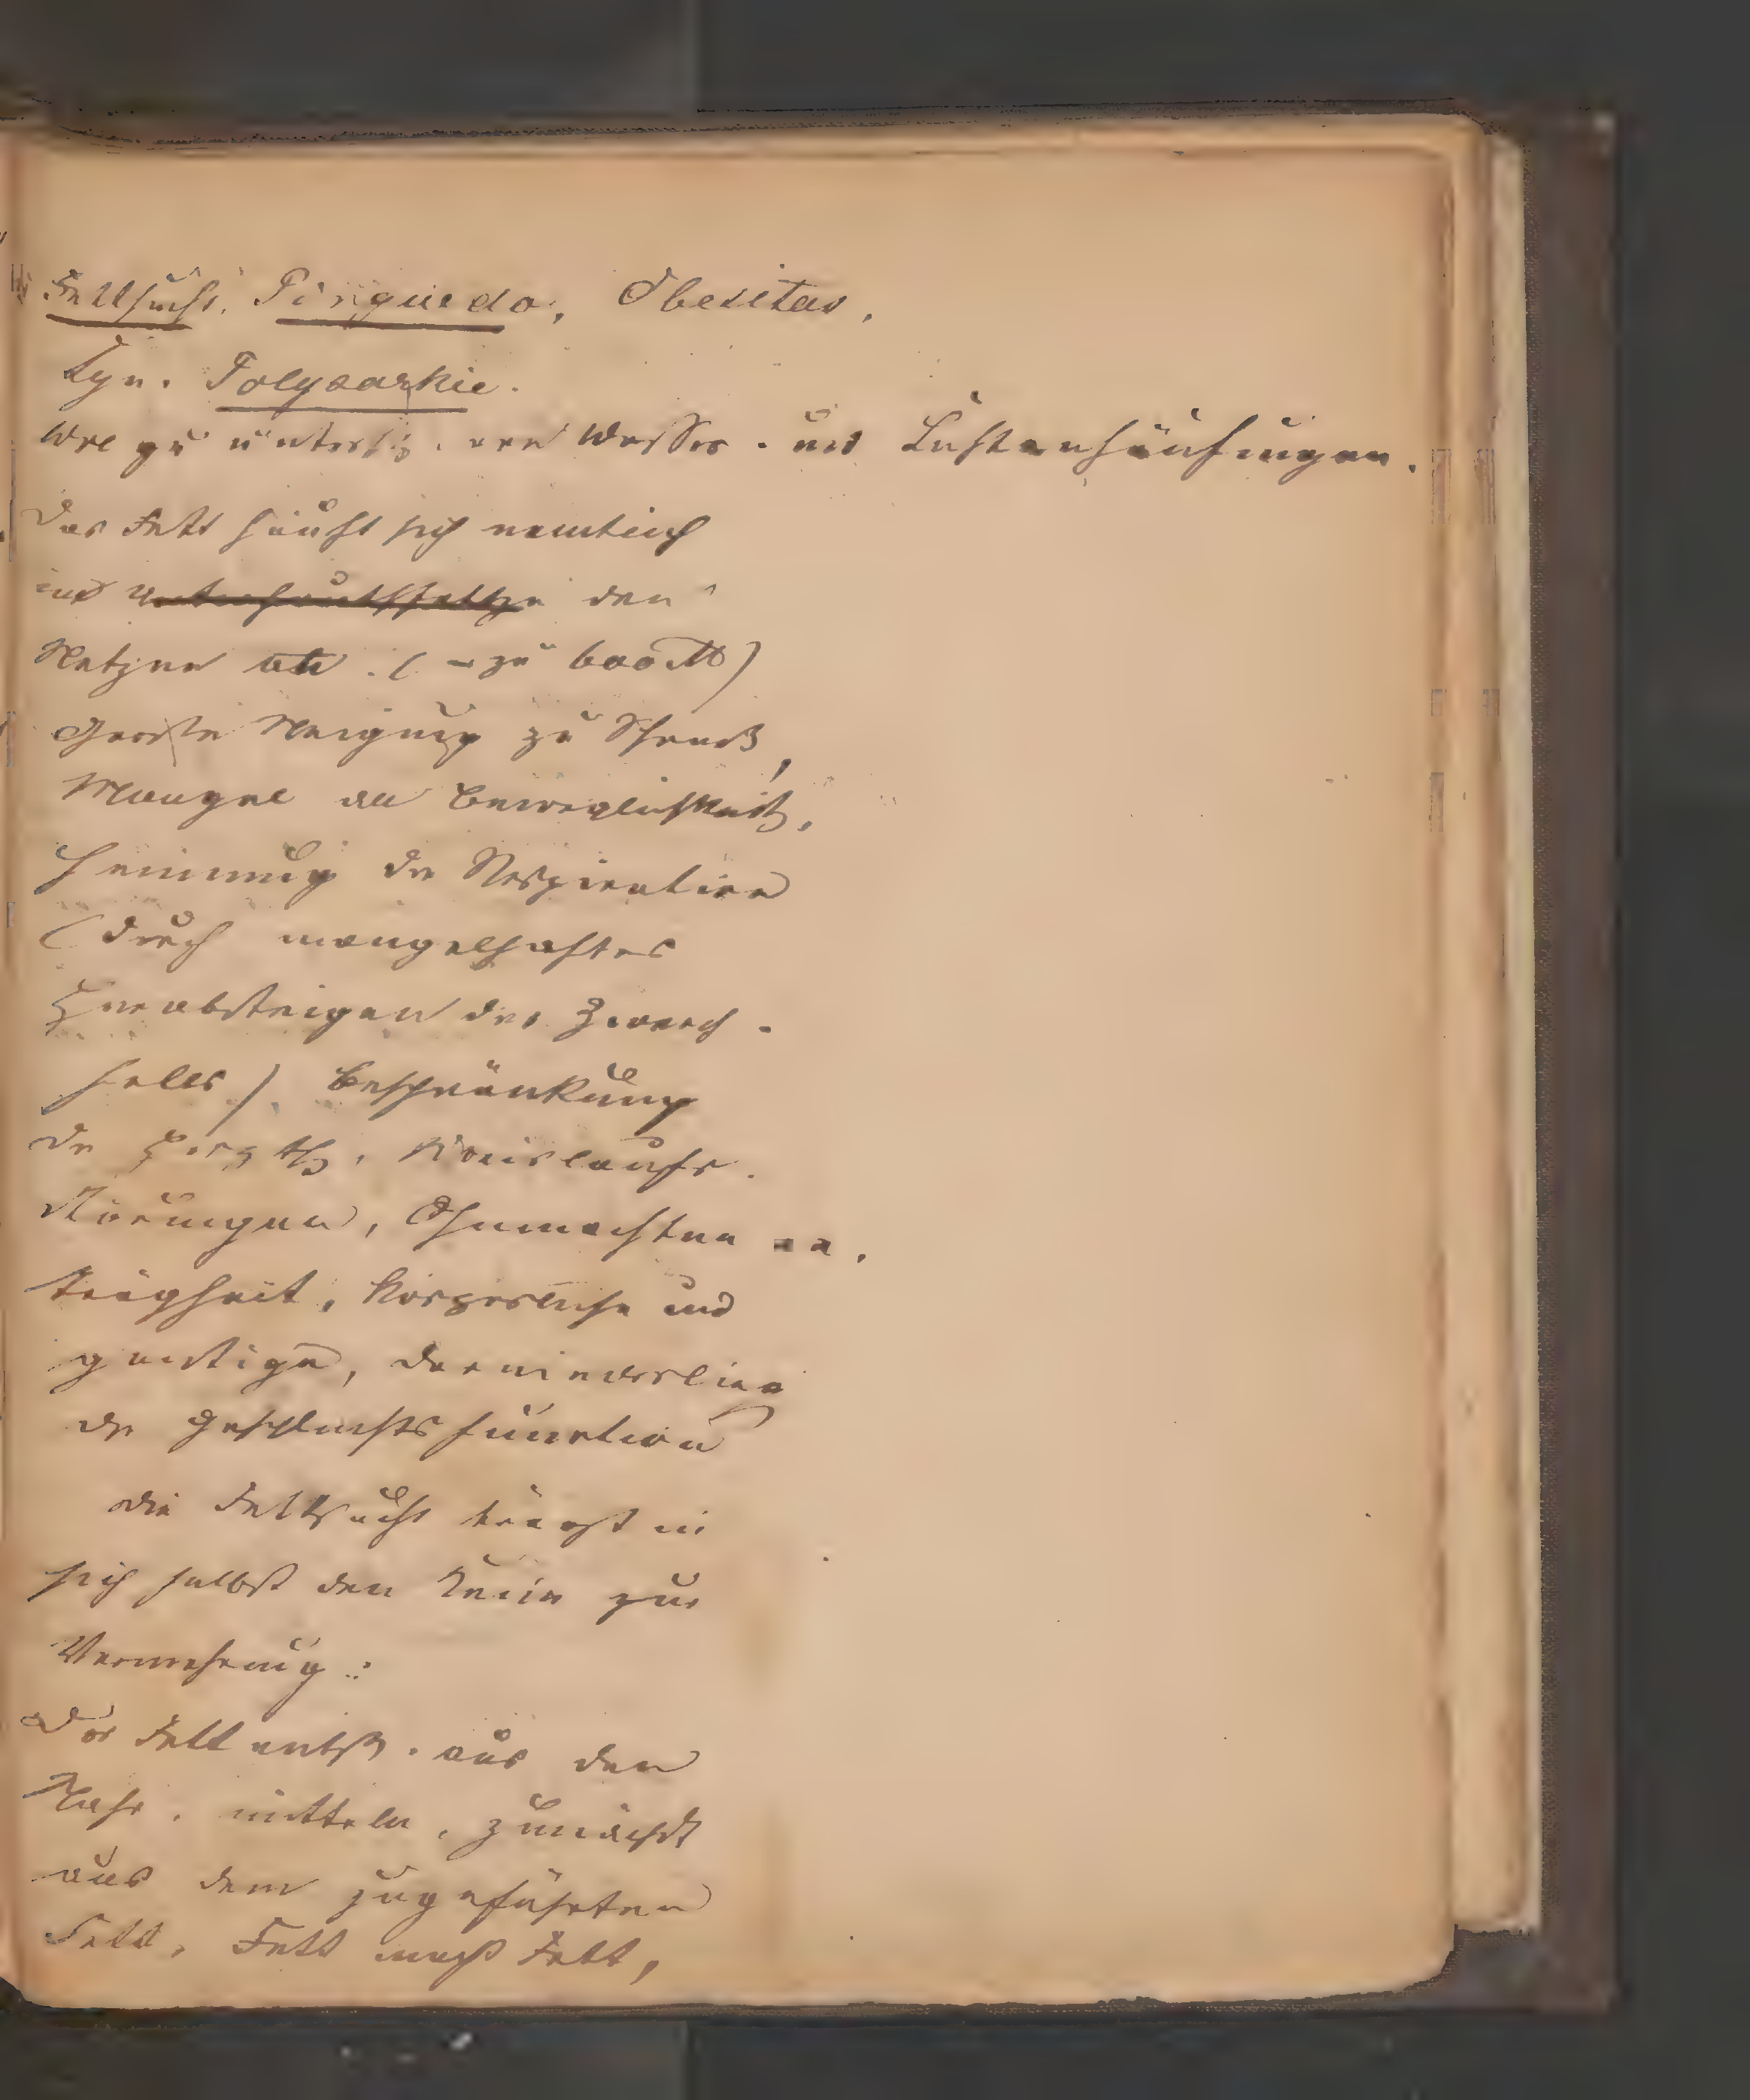 Fettsucht. Pinguedo, Obesitas,
Syn. Polysarkie.
Wol zu untersch. von Wasser- und Luftanhäufungen.
Das Fett häuft sich namentlich
im Unterhautfettze den
Netzen an. (– zu 600 ℔)
Grosse Neigung zu Schweiß,
Mangel an Beweglichkeit,
Hemmung der Respiration
(durch mangelhaftes
Herabsteigen des Zwerch-
felles) Beschränkung
der Herzth, Kreislaufs-
störungen, Ohnmachten
Trägheit, körperliche und
geistige, Darniederlieg
der Geschlechtsfunction
Die Fettsucht trägt in
sich selbst den Keim zur
Vermehrung:
Das Fett entst. aus den
Nahr. mitteln, zunächst
aus dem zugeführten
Fett, Fett macht Fett,